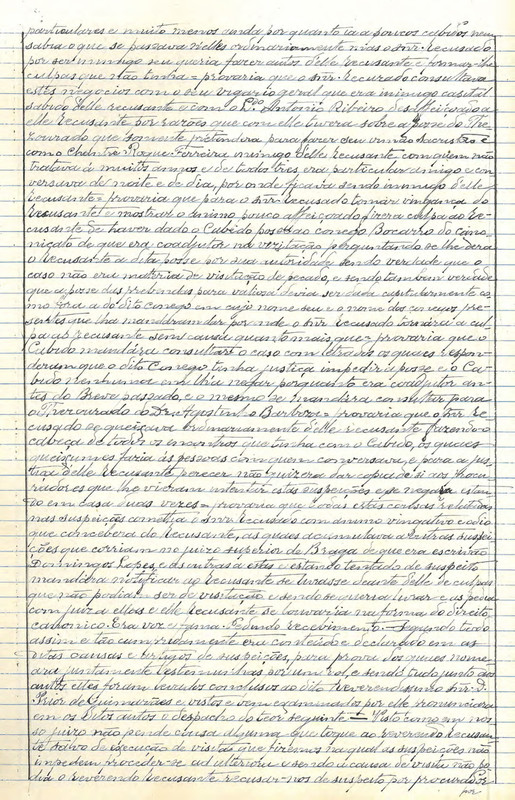 particulares e muito menos ainda por quanto ia a poucos cabidos nem
sabia o que se passava nelles ordinariamente mas o snr. recusado
por ser inimigo seu queria fazer autos delle recusante e formar-lhe
culpas que não tinha = provaria que o snr. recusado consultava
estes negocios com o seu vigario geral que era inimigo capital
sabido delle recusante e com o Antonio Ribeiro desaffeiçoado a
elle recusante por razões que com elle tivera sobre a posse do The-
zourado que somente pretendera para fazer seu irmão sacristão e
com o Chantre Roque Ferreira inimigo delle Recusante com quem não
tratava á muitos annos e de todos tres era particular amigo e con-
versava de noite e de dia, por onde ficava sendo inimigo delle
recusante = provaria que para o snr. recusado tomar vingança do
recusante e mostrar o animo pouco affeiçoado, pozera culpa ao re-
cusante de haver dado o Cabido posse ao conego Bocarro do cano-
nicado de que era coadjutor na vezitação perguntando se lhe dera
o recusante a dita posse por sua autoridade sendo verdade que o
caso não era materia de visitação de peccado, e sendo tambem verdade
que a posse das prebendas para valiosa devia ser dada capitularmente co-
mo fôra a do dito conego em cujo nome seu e o nome dos conegos pre-
sentes que lha mandaram dar por onde o snr. recusado tornára a cul-
pa ao recusante sem causa quanto mais que = provaria que o
Cabido mandára consultar o caso com letrados os quaes respon-
deram que o dito Conego tinha justiça impedir a posse e o Ca-
bido nenhuma em lhia negar porquanto era coadjutor an-
tes do Breve passado, e o mesmo se mandára consultar para
o Thezourado do Dr. Agostinho Barboza = provaria que o snr. re-
cusado se queixava ordinariamente delle Recusante fazendo-o
cabeça de todos os encontros que tinha com o Cabido, os quaes
queixumes fazia ás pessoas com quem conversava e para a jus-
tiça delle Recusante parecer não quizera dar copia de si aos Procu-
radores que lhe vieram intentar estas suspeições e se negára estan-
do em casa duas vezes = provaria que todas estas cousas relatadas
nas suspeições comettia o snr. recusado com animo vingativo e odio
que concebera do Recusante, as quaes acumulava a outras suspei-
ções que corriam no juizo superior de Braga de que era escrivão
Domingos Lopes, e as outras a estas e estando tentado de suspeito
mandára notificar ao Recusante se livrasse deante delle de culpas
que não podiam ser de visitação e sendo se queria livrar e as pedia
com juiz a ellas e elle recusante se louvaria na forma do direito
canonico. Era voz e fama. Pedindo recebimento. Segundo tudo
assim e tão cumpridamente era contheudo e declarado em as
ditas causas e artigos de suspeições, para prova dos quaes nome-
ára juntamente testemunhas por um rol, e sendo tudo junto aos
autos elles foram levados conclusos ao dito Reverendissimo snr. D.
Prior de Guimarães e vistos e bem examinados por elle pronunciara
em os ditos autos o despacho do teor seguinte = Visto como em nos-
so juizo não pende causa alguma que toque ao reverendo recusan-
te salvo de execução de visitas que fizemos na qual as suspeições não
impedem proceder-se ad ulteriora e sendo a causa de visita não po-
dia o reverendo recusante recusar-nos de suspeito por procurador
por